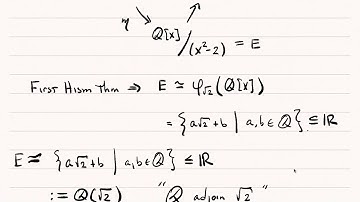 η
Q[x]/(x²-2) = E
First Hism Thm ⇒ E ≃ φ√2(Q[x])
= {a√2+b | a,b ∈ Q} ≤ IR
E ≃ {a√2+b | a,b ∈ Q} ≤ IR
:= Q(√2) "Q adjoin √2"